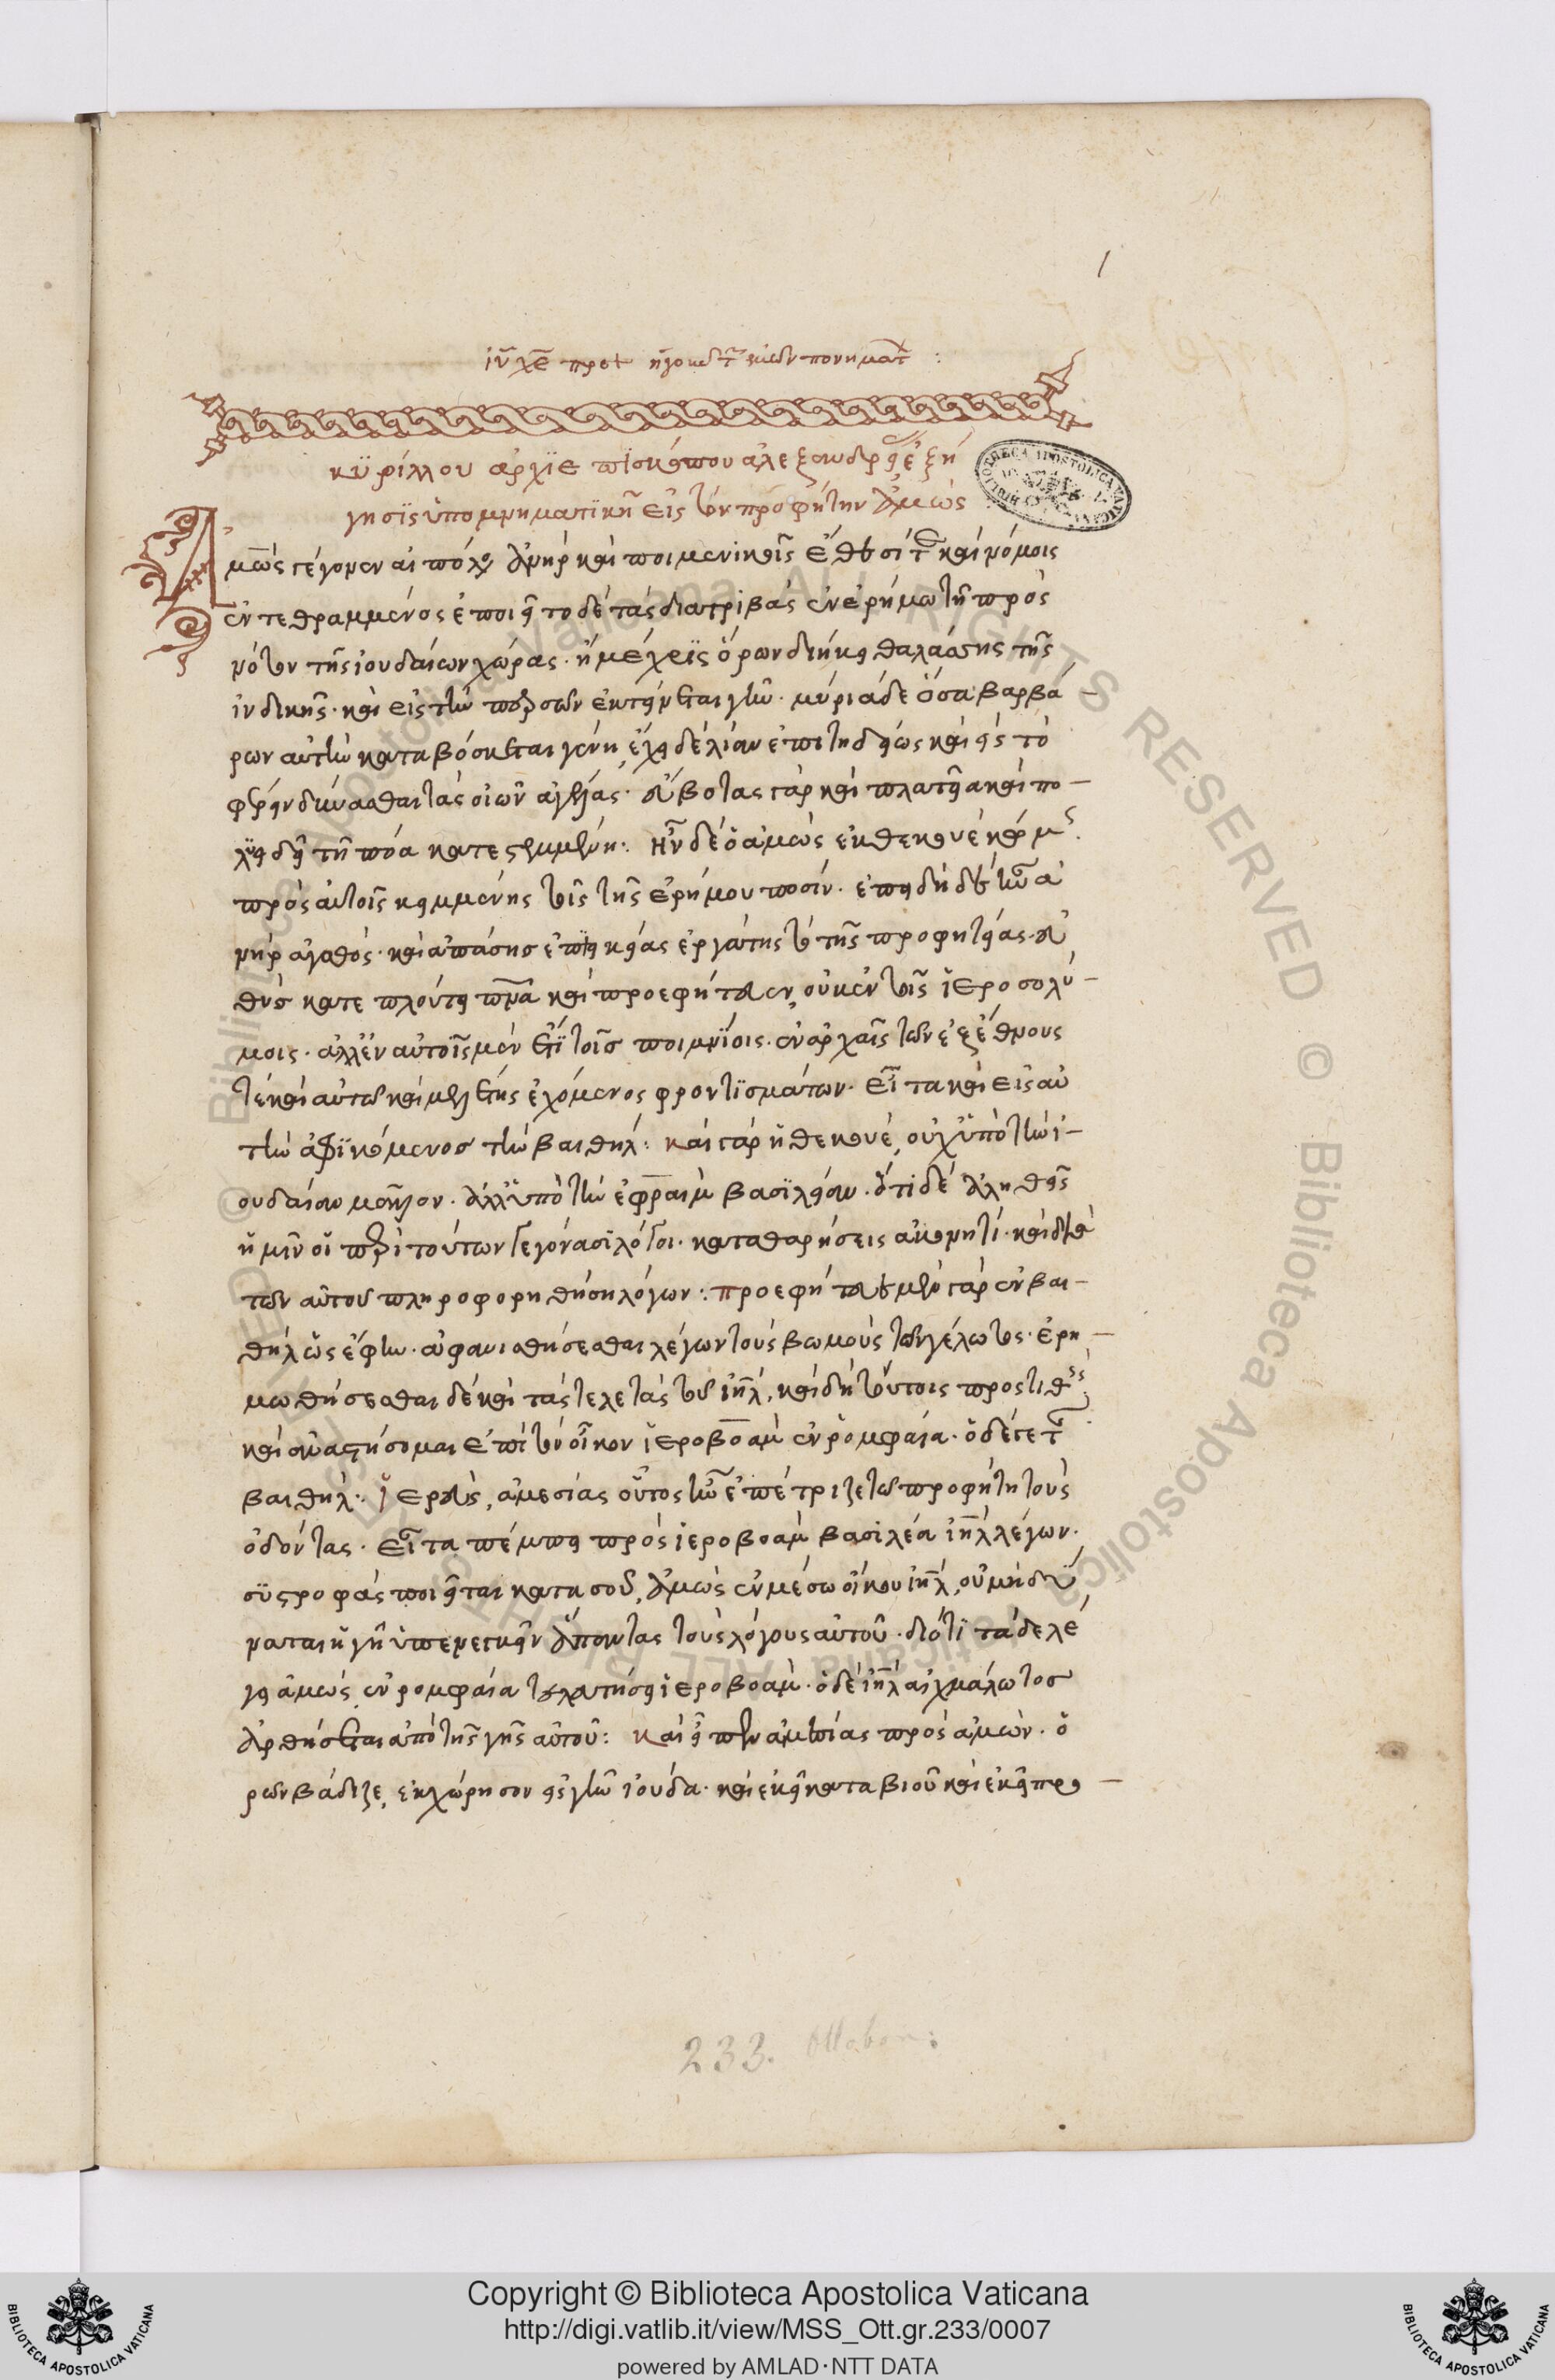 1
κϋρίλλου ἀρχϊεπισκόπου ἀλεξανδρεί ἐξή
γησϊς ὑπομνηματϊκὴ εἰς τὸν προφήτην Ἀμώς
Ἀμὼς γέγονεν αἰπόλος ἀνὴρ καὶ ποιμενικοῖς ἔθεσί τε καὶ νόμοις
ἐντεθραμμένος ἐποιεῖτο δὲ τὰς διατριβὰς ἐν ἐρήμω τῆ πρὸς
νότον τῆς ἰουδαίων χώρας. ἡ μέχρϊς ὅρων διήκει θαλάσσης τῆς
ἰνδικῆς. καὶ εἰς τὴν περσῶν ἐκτείνεται γῆν. μύρια δὲ ὅσα βαρβά
ρων αὐτὴν καταβόσκεται γένη, ἔχει δὲ λίαν ἐπιτηδείως καὶ εἰς τὸ
φέρειν δύνασθαι τὰς οἰῶν ἀγέλας. εὔβοτας γὰρ καὶ πλατεῖα καὶ πο
λϋειδεῖ τῆ πόα κατεστεμμένη: ἦν δὲ ὁ ἀμὼς ἐκ θεκουὲ κώμς
πρὸς αὐτοῖς κειμμένης τοῖς τῆς ἐρήμου ποσίν. ἐπειδὴ δὲ ἦν ἀ
νὴρ ἀγαθός. καὶ ἁπάσης ἐπϊεικείας ἐργάτης τὸ τῆς προφητείας εὐ
θὺς κατεπλούτει πνα καὶ προεφήτευεν, οὐκ ἐν τοῖς ἱεροσολύ
μοις. ἀλλ' ἐν αὐτοῖς μὲν ἔτϊ τοῖς ποιμνϊοις. ἐν ἀρχαῖς τῶν ἐξ ἔθνους
τὲ καὶ αὐτῶ καὶ μελέτης ἐχόμενος φροντϊσμάτων. εἶτα καὶ εἰς αὐ
τὴν ἀφϊκόμενος τὴν βαιθήλ: καὶ γὰρ ἡ θεκουέ, οὐχ ὑπὸ τὴν ἰ
ουδαίων μᾶλλον. ἀλλ' ὑπὸ τὴν ἐφραιμ βασϊλείαν. ὅτι δὲ ἀληθεῖς
ἡμῖν οἱ περὶ τούτων γεγόνασϊ λόγοι. καταθαρήσεις ἀκονητί. καὶ διὰ
τῶν αὐτοῦ πληροφορηθήση λόγων: προεφήτευε μὲν γὰρ ἐν βαι
θὴλ ὡς ἔφην. ἀφανισθήσεσθαι λέγων τοὺς βωμοὺς τῶν γέλωτος. ἐρη
μωθήσεσθαι δὲ καὶ τὰς τελετὰς τοῦ ἰηλ, καὶ δὴ τούτοις προστιθεὶς
καὶ ἀναστήσομαι ἐπὶ τὸν οἶκον ἱεροβοαμ ἐν ῥομφαία. ὁ δέ γε τῆς
βαιθήλ: ἱερεὺς, ἀμεσίας οὗτος ἦν ἐπέτριζε τῶ προφήτη τοὺς
ὀδόντας. εἶτα πέμπει πρὸς ἱεροβοαμ βασιλέα ἰηλ λέγων.
σϋστροφὰς ποιεῖται κατα σοῦ, ἀμὼς ἐν μέσω οἴκου ἰηλ, οὐ μὴ δύ
ναται ἡ γῆ ὑπενεγκεῖν ἅπαντας τοὺς λόγους αὐτοῦ. διότϊ τάδε λέ
γει ἀμὼς, ἐν ρομφαία τελευτήσει ἱεροβοαμ. ὁ δὲ ἰηλ αἰχμάλωτος
ἀρθήσεται ἀπὸ τῆς γῆς αὐτοῦ: καὶ εἶπεν ἀμεσίας πρὸς ἀμών. ὁ
ρῶν βάδιζε, ἐκχώρησον εἰς γῆν ἰούδα. καὶ ἐκεῖ καταβιοῦ καὶ ἐκεῖ προ
233. Ottobon:
BIBLIOTECA APOSTOLICA VATICANA
Copyright © Biblioteca Apostolica Vaticana
http://digi.vatlib.it/view/MSS_Ott.gr.233/0007
powered by AMLAD·NTT DATA